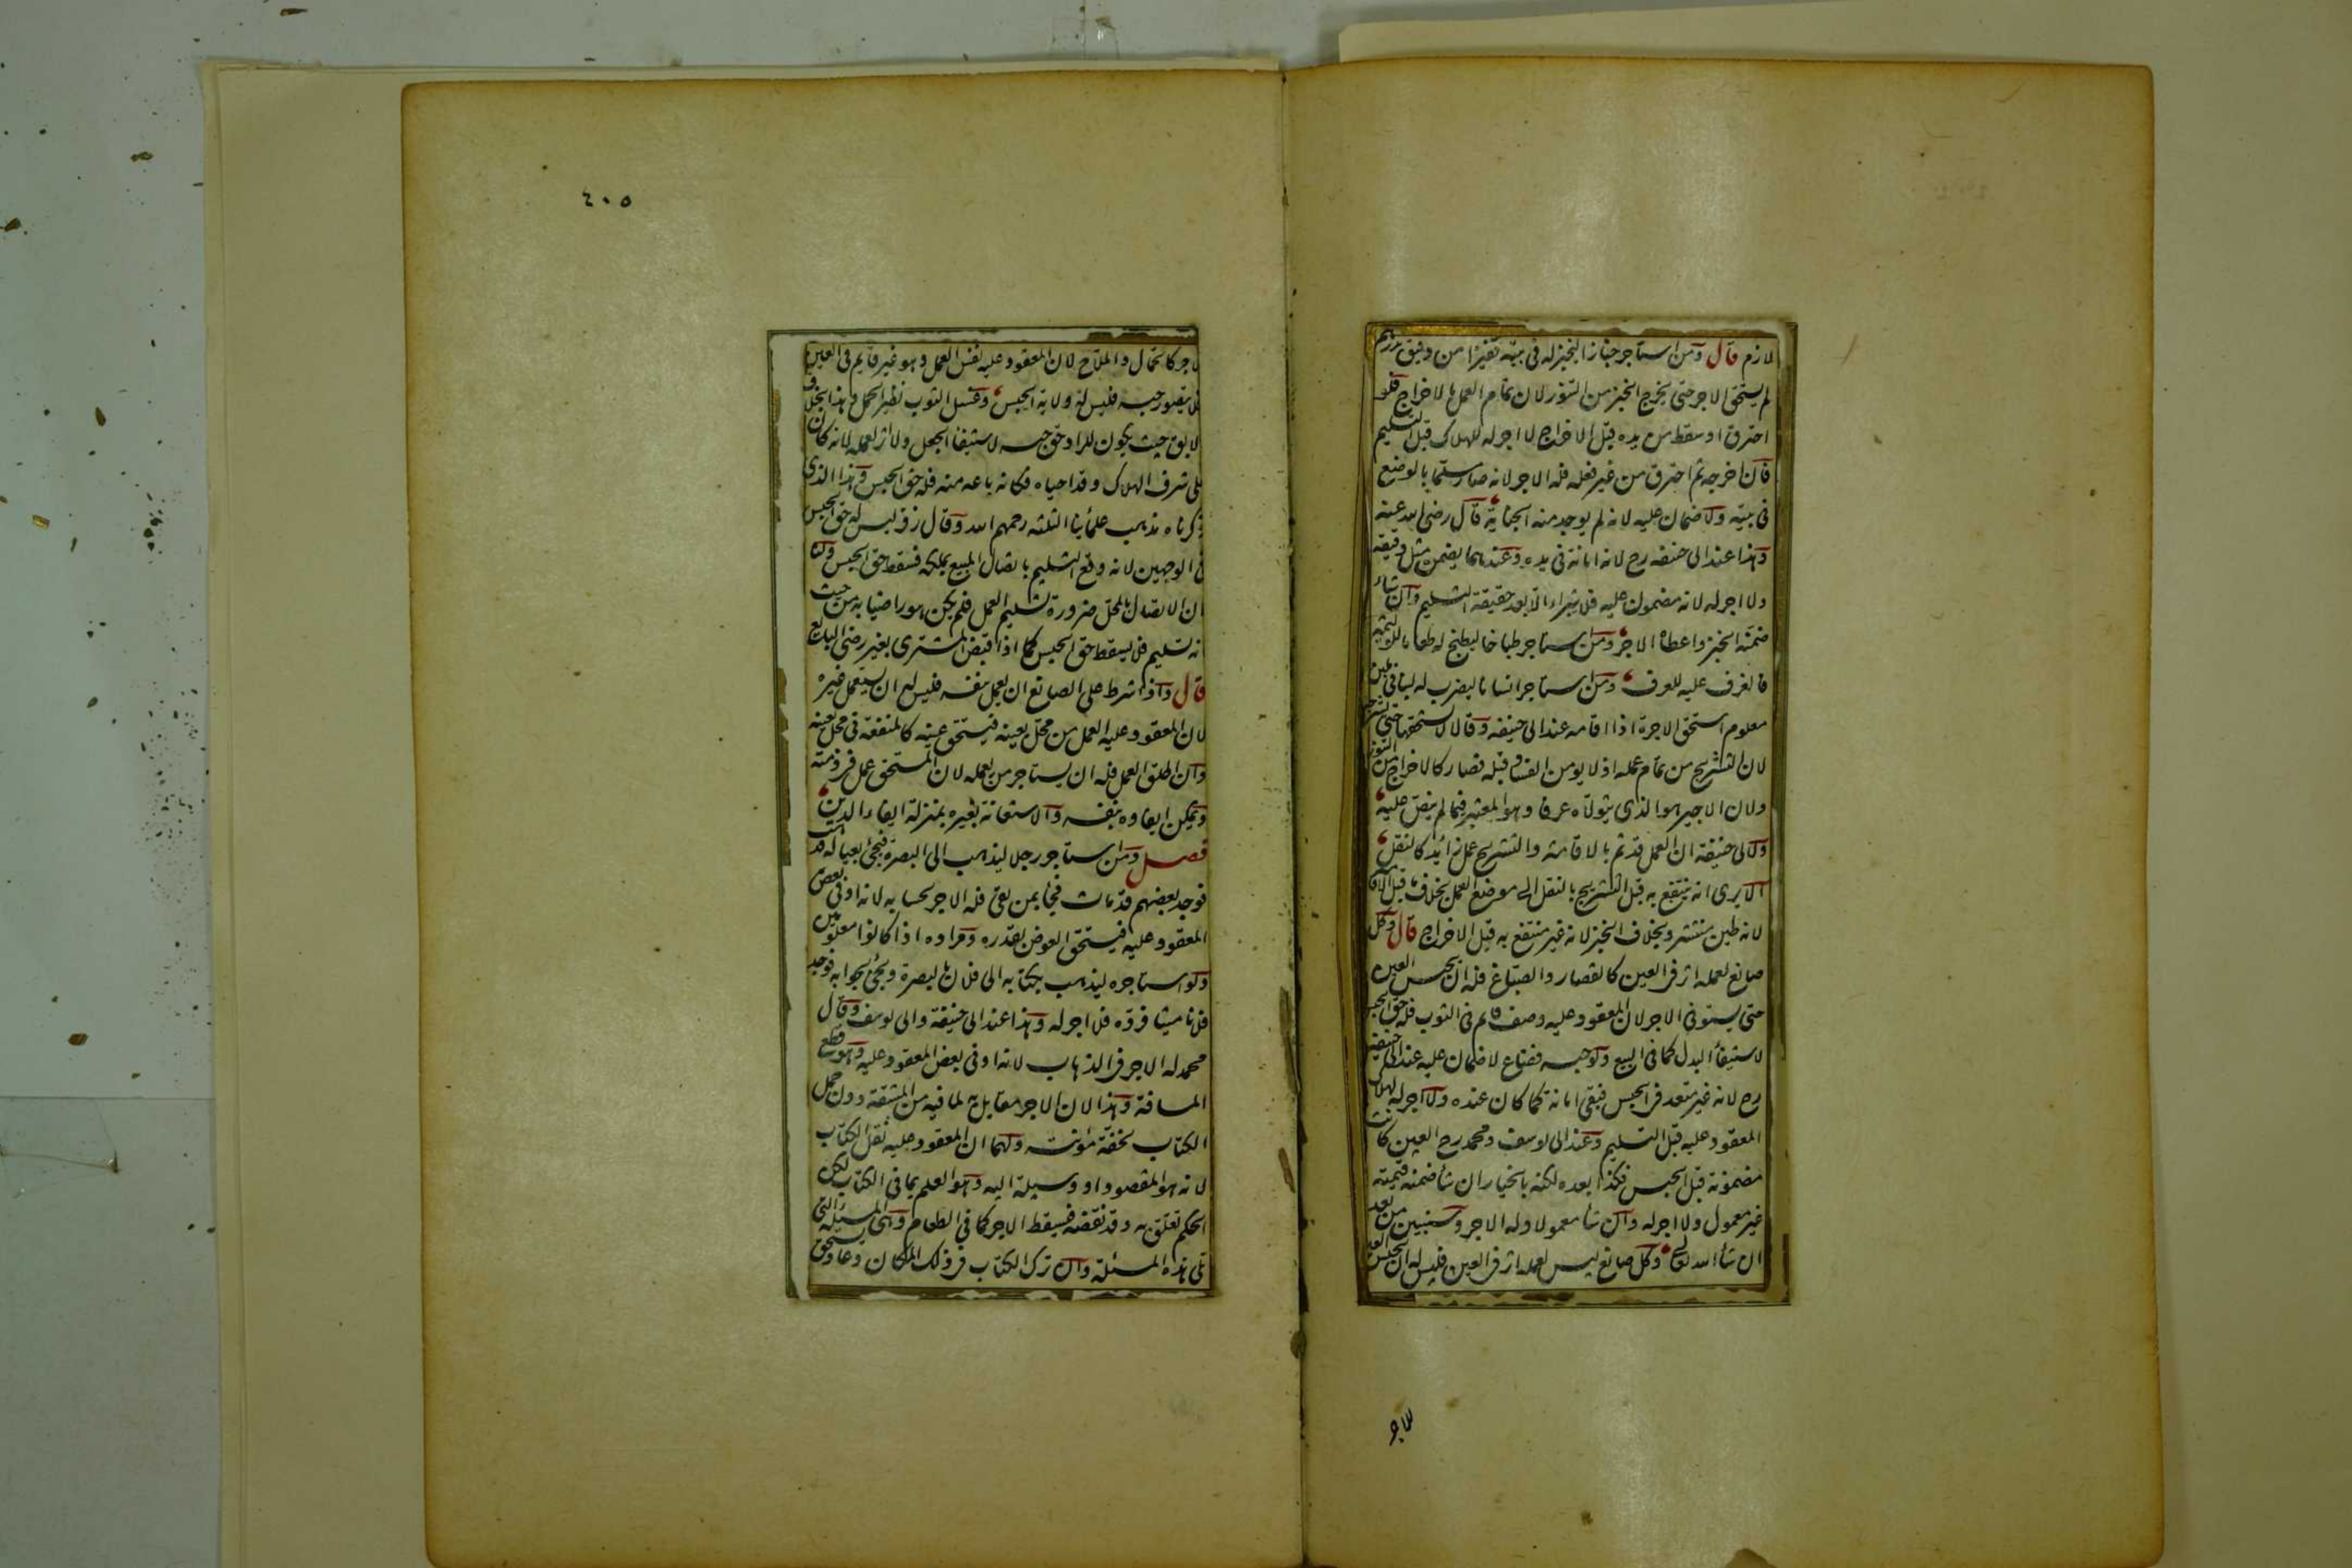 لازم قال ومن استاجر خبازا ليخبز له فى بيته قفيزا من دقيق بدرهم
لم يستحق الاجر حتى يخرج الخبز من التنور لان تمام العمل بالاخراج فلو
احترق او سقط من يده قبل الاخراج لا اجر له للهلاك قبل التسليم
فان اخرجه ثم احترق من غير فعله فله الاجر لانه صار مسلما بالوضع
فى بيته ولا ضمان عليه لانه لم يوجد منه الجناية قال رضى الله عنه
وهذا عند ابى حنيفه رح لانه امانة فى يده وعندهما يضمن مثل دقيقه
ولا اجر له لانه مضمون عليه فلا يبراء الا بعد حقيقة التسليم وان شاء
ضمنه الخبز واعطاه الاجر ومن استاجر طباخا ليطبخ له طعاما للوليمة
فالغرف عليه للعرف ومن استاجر انسانا ليضرب له لبنا فى لبن
معلوم استحق الاجرة اذا اقامه عند ابى حنيفه وقالا لا يستحقها حتى يشرجه
لان التشريج من تمام عمله اذ لا يومن الفساد قبله فصار كالاخراج من التنور
ولان الاجير هو الذى يتولاه عرفا وهو المعتبر فيما لم ينص عليه
ولابى حنيفة ان العمل قد تم بالاقامة والتشريج عمل زائد كالنقل
الا يرى انه ينتفع به قبل التشريج بالنقل الى موضع العمل بخلاف قبل الاقامة
لانه طين منتشر وبخلاف الخبز لانه غير منتفع به قبل الاخراج قال وكل
صانع لعمله اثر فى العين كالقصار والصباغ فله ان يحبس العين
حتى يستوفى الاجر لان المعقود عليه وصف قائم فى الثوب فله حق الحبس
لاستيفاء البدل كما فى البيع ولو حبسه فضاع لا ضمان عليه عند ابى حنيفه
رح لانه غير متعد فى الحبس فبقى امانة كما كان عنده ولا اجر له لهلاك
المعقود عليه قبل التسليم وعند ابى يوسف ومحمد رح العين كانت
مضمونة قبل الحبس فكذا بعده لكنه بالخيار ان شاء ضمنه قيمته
غير معمول ولا اجر له وان شاء معمولا وله الاجر وسنبين من بعد
ان شاء الله تعالى وكل صانع ليس لعمله اثر فى العين فليس له ان يحبس العين
للاجر
٤٠٥
للاجر كالحمال والملاح لان المعقود عليه نفس العمل وهو غير قايم فى العين
فلا يتصور حبسه فليس له ولاية الحبس وغسل الثوب نظير الحمل وهذا بخلاف
الابق حيث يكون للراد حق حبسه لاستيفاء الجعل ولا اثر لعمله لانه كان
على شرف الهلاك وقد احياه فكانه باعه منه فله حق الحبس وهذا الذى
ذكرناه مذهب علمائنا الثلثه رحمهم الله وقال زفر ليس له حق الحبس
فى الوجهين لانه وقع التسليم باتصال المبيع بملكه فسقط حق الحبس ولنا
ان الاتصال بالمحل ضرورة تسليم العمل فلم يكن هو راضيا به من حيث
انه تسليم فلا يسقط حق الحبس كما اذا قبض المشترى بغير رضى البايع
قال واذا شرط على الصانع ان يعمل بنفسه فليس له ان يستعمل غيره
لان المعقود عليه العمل من محل بعينه فيستحق عينه كالمنفعة فى محل بعينه
وان اطلق العمل فله ان يستاجر من يعمله لان المستحق عمل فى ذمته
ويمكن ايفاوه بنفسه والاستعانة بغيره بمنزلة ايفاء الدين
فصل ومن استاجر رجلا ليذهب الى البصرة فيجئ بعياله فذهب
فوجد بعضهم قد مات فجاء بمن بقى فله الاجر بحسابه لانه اوفى بعض
المعقود عليه فيستحق العوض بقدره ومراده اذا كانوا معلومين
ولو استاجره ليذهب بكتابه الى فلان بالبصرة ويجئ بجوابه فوجد
فلانا ميتا فرده فلا اجر له وهذا عند ابى حنيفة وابى يوسف وقال
محمد له الاجر فى الذهاب لانه اوفى بعض المعقود عليه وهو قطع
المسافة وهذا لان الاجر مقابل به لما فيه من المشقة دون حمل
الكتاب لخفة مؤنته ولهما ان المعقود عليه نقل الكتاب
لانه هو المقصود او وسيلة اليه وهو العلم بما فى الكتاب لكن
الحكم تعلق به وقد نقضه فيسقط الاجر كما فى الطعام وهى المسئلة التى
تلى هذه المسئلة وان ترك الكتاب فى ذلك المكان وعاد يستحق